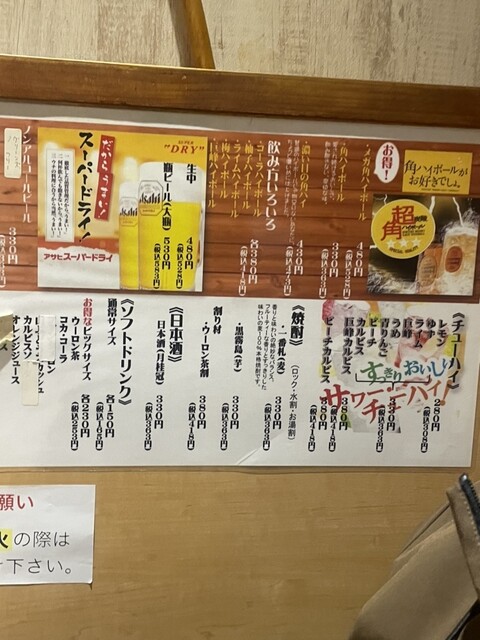 角ハイボールが
お好きでしょ。
お得!
・メガ角ハイボール
480円
(税込528円)
・角ハイボール
330円
(税込363円)
・濃い目の角ハイ
430円
(税込473円)
飲み方いろいろ
・コーラハイボール
・柚子ハイボール
・ライムハイボール
・梅ハイボール
・巨峰ハイボール
各380円
(税込418円)
超角
ハイボール
SUPER
"DRY"
生中
480円
(税込528円)
瓶ビール(大瓶)
530円
(税込583円)
だからうまい!
スーパードライ!
Asahi
アサヒスーパードライ
ノンアルコールビール
330円
(税込363円)
《チューハイ》
レモン
280円
(税込308円)
ゆず
ライム
巨峰
うめ
青りんご
ピーチ
330円
(税込363円)
カルピス
巨峰カルピス
ピーチカルピス
380円
(税込418円)
380円
(税込418円)
すっきりおいしい
サワー・チューハイ!
《焼酎》
(ロック・水割・お湯割)
・一番札(麦)
330円
(税込363円)
香りと味わいの絶妙なバランス。
フルーティな香りとすっきりした
味わいの麦100%本格焼酎です。
・黒霧島(芋)
380円
(税込418円)
割り村
・ウーロン茶割
380円
(税込418円)
《日本酒》
日本酒(月桂冠)
330円
(税込363円)
《ソフトドリンク》
通常サイズ
各150円
(税込165円)
お得なビッグサイズ
各230円
(税込253円)
ウーロン茶
コカ・コーラ
カルピス
オレンジジュース
願い
火の際は
け下さい。